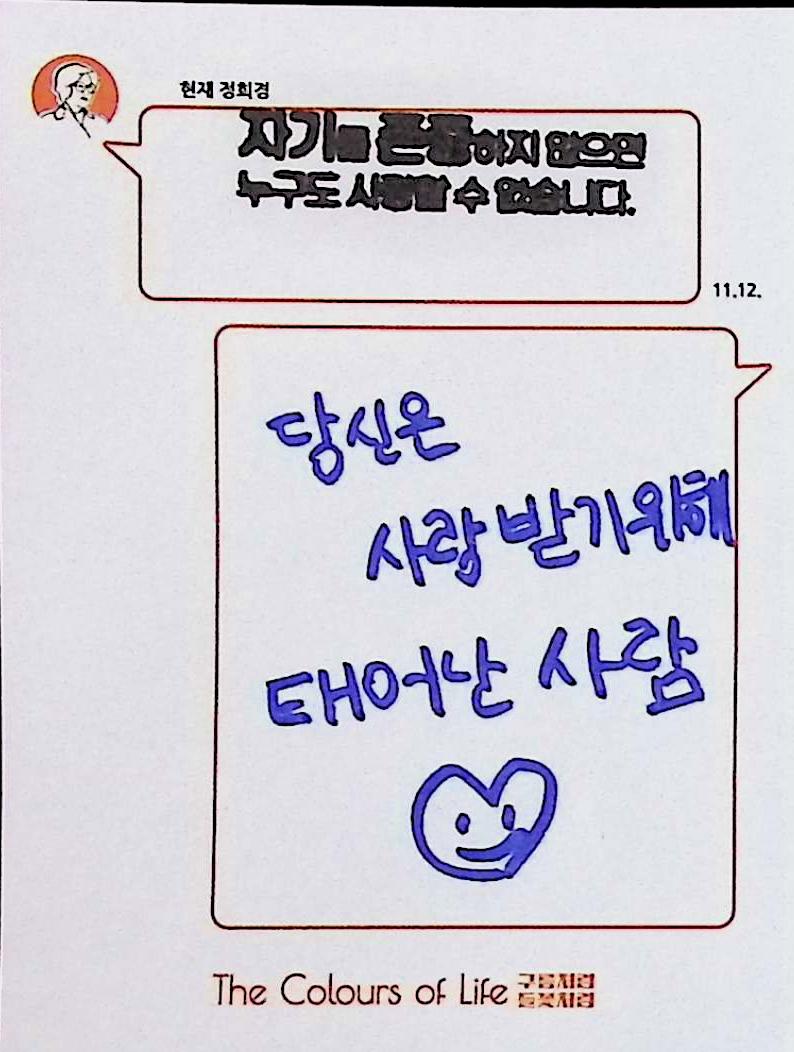 현재 정희경
자기를 존중하지 않으면
누구도 사랑할 수 없습니다.
11.12.
당신은
사랑 받기위해
태어난 사람
The Colours of Life 구름처럼
들꽃처럼